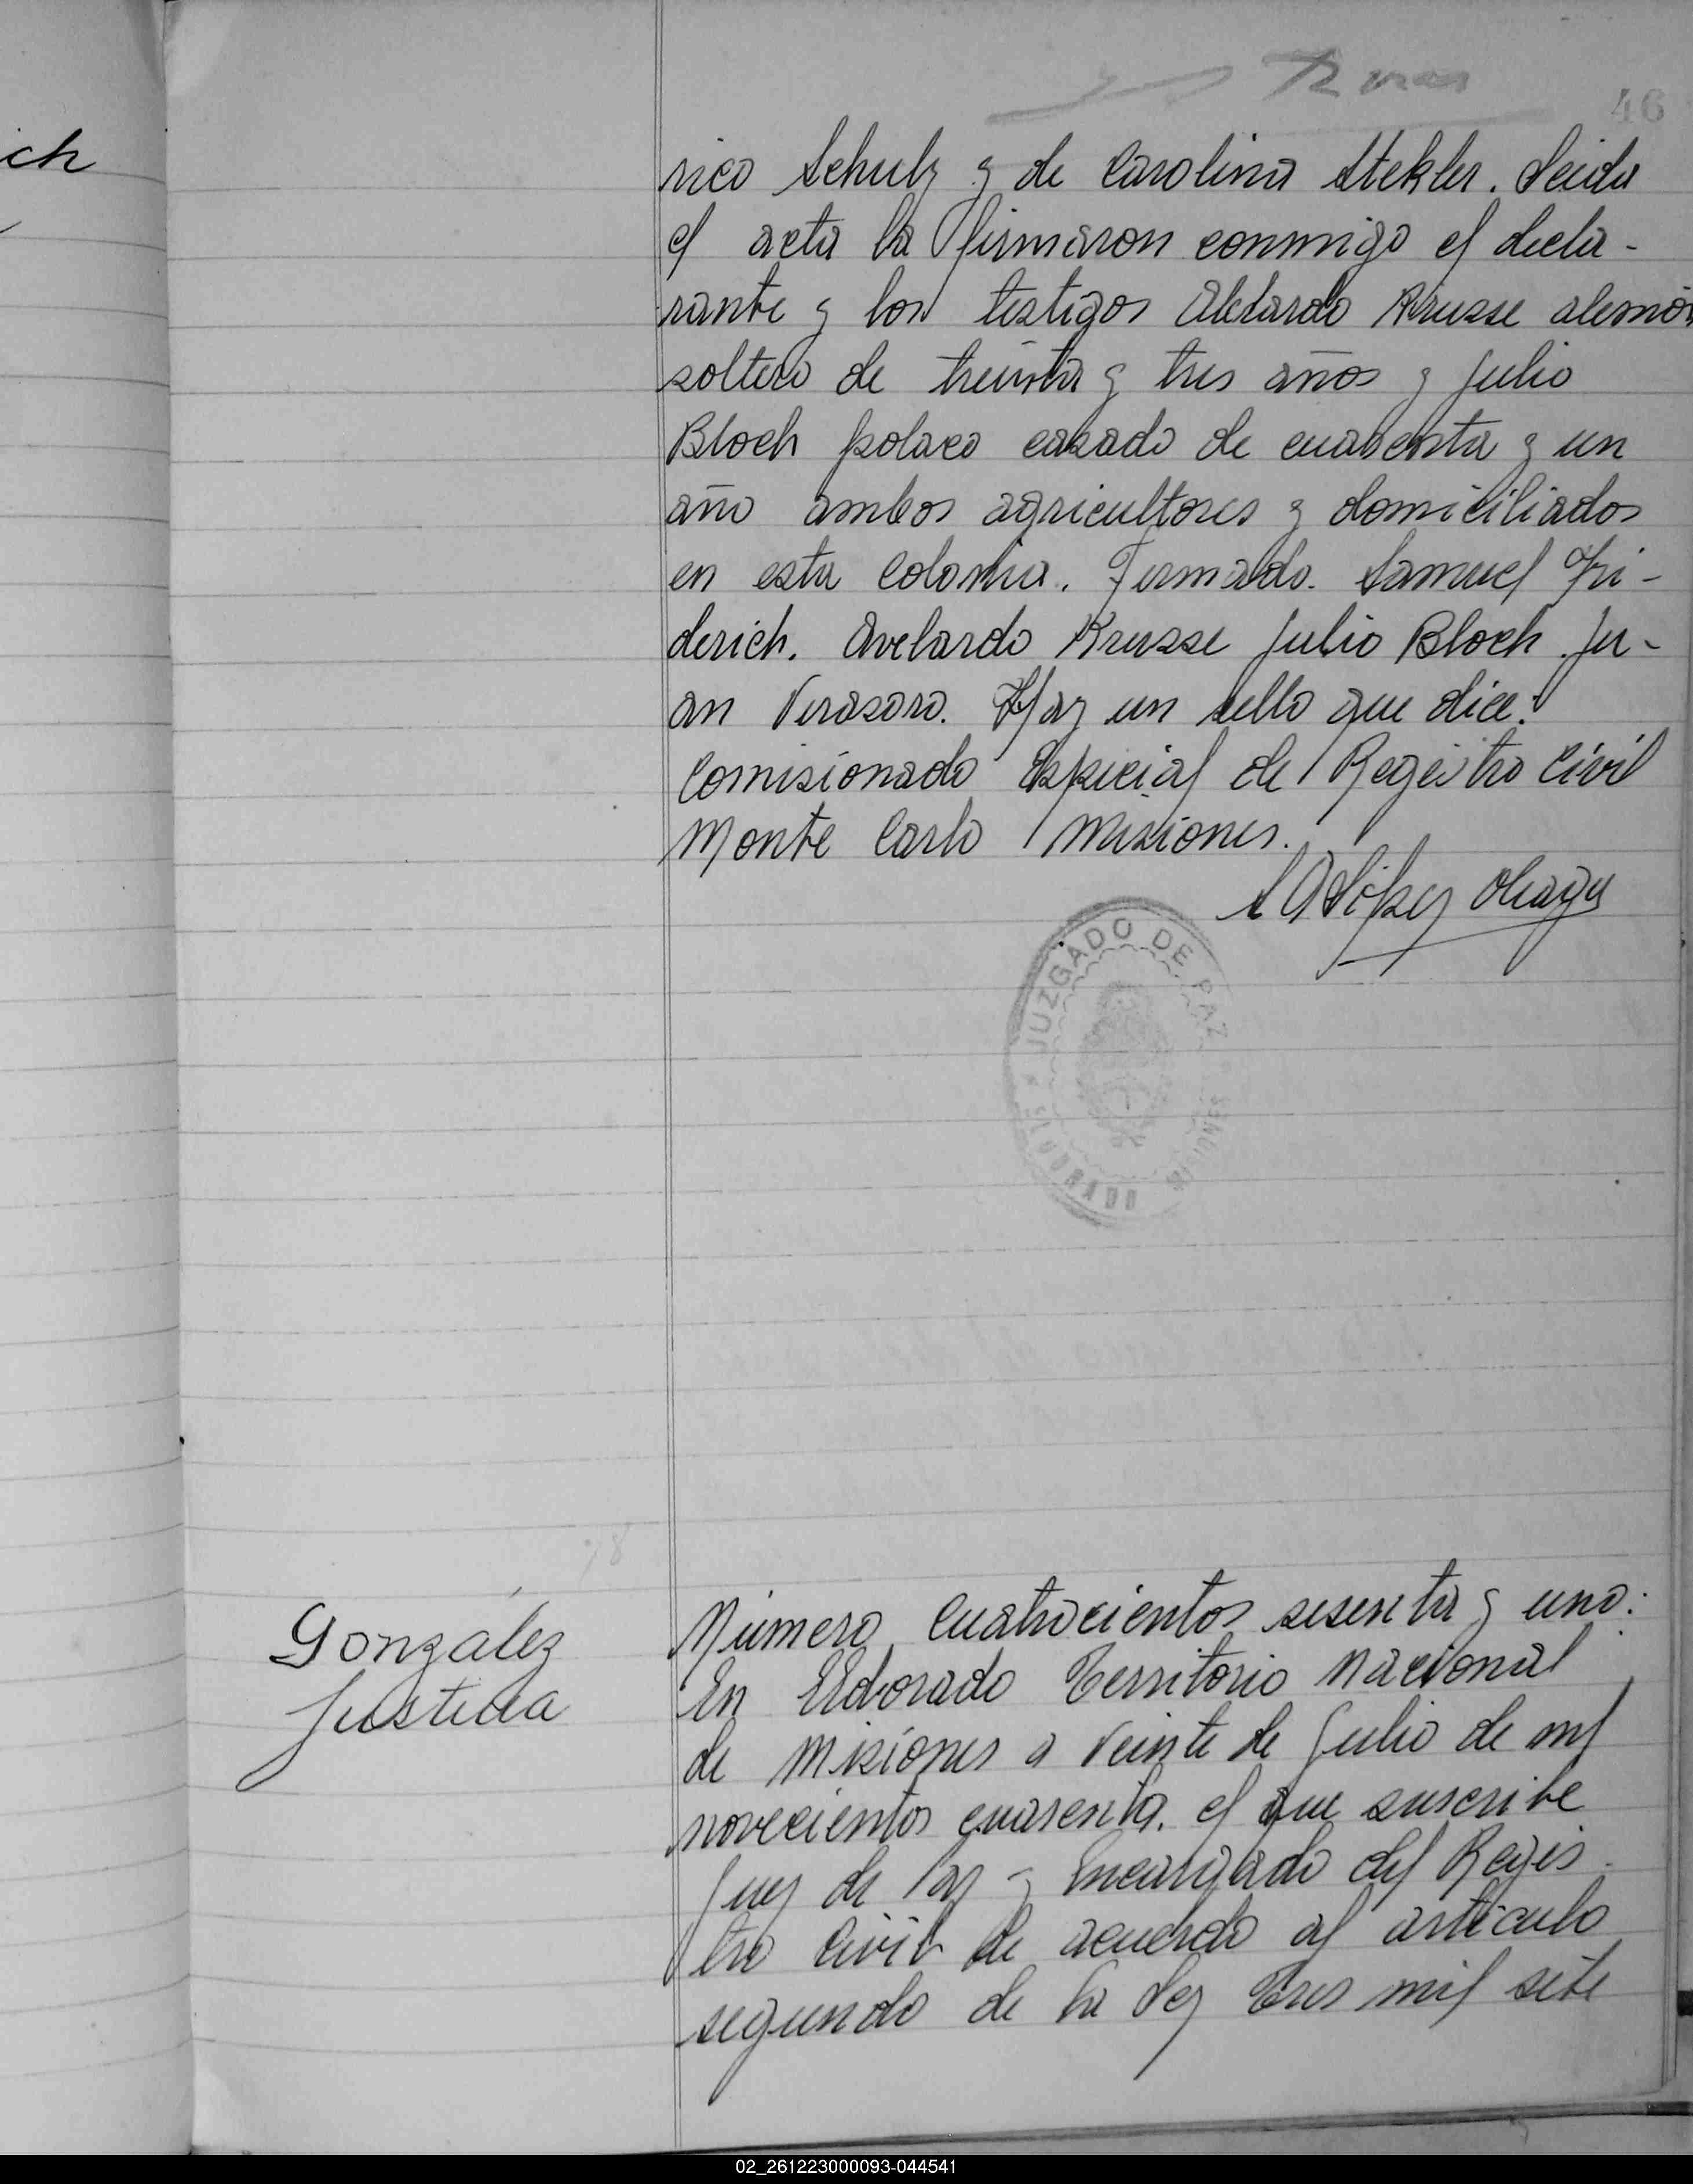 46
ich
rico Schulz y de Carolina Stekler. Leida
el acta la firmaron conmigo el decla-
rante y los testigos Abelardo Krusse alemán
soltero de treinta y tres años y Julio
Bloch polaco casado de cuarenta y un
año ambos agricultores y domiciliados
en esta Colonia. Firmado. Samuel Fri-
derich. Avelardo Krusse Julio Bloch. Ju-
an Verasoro. Hay un sello que dice:
Comisionado Especial de Registro Civil
Monte Carlo Misiones.
JUZGADO DE PAZ
MISIONES
González
Justicia
Número Cuatrocientos sesenta y uno:
En Eldorado Territorio Nacional
de Misiones a Veinte de Julio de mil
novecientos cuarenta. el que suscribe
Juez de Paz y Encargado del Regis-
tro Civil de acuerdo al artículo
segundo de la Ley Tres mil sete
02_261223000093-044541